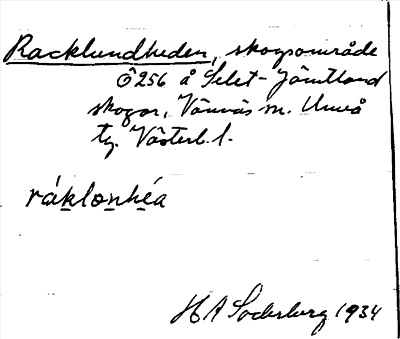 Racklundheden, skogsområde
Ö256 å Selet-Jämtland
skogar, Vännäs m. Umeå
tg. Västerb. l.
ráklonhéa
H A Söderberg 1934